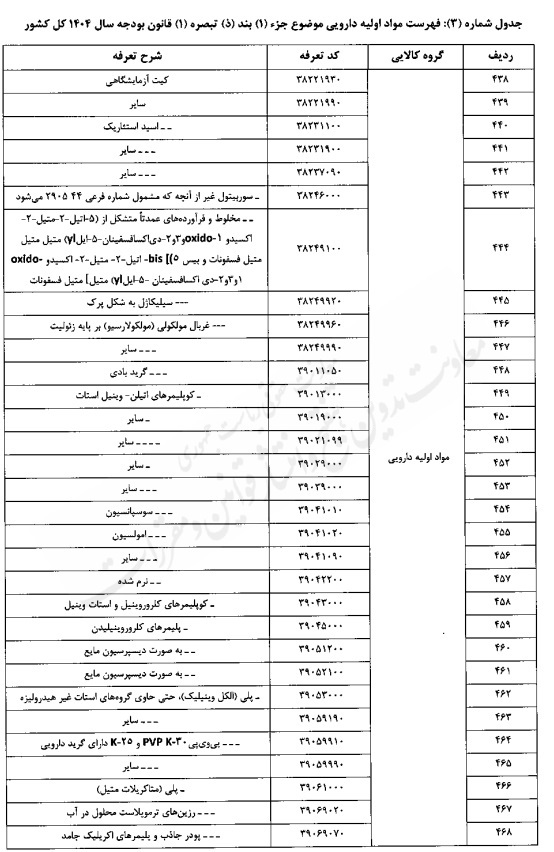 جدول شماره (۳): فهرست مواد اولیه دارویی موضوع جزء (۱) بند (ذ) تبصره (۱) قانون بودجه سال ۱۴۰۴ کل کشور
ردیف گروه کالایی کد تعرفه شرح تعرفه
۴۳۸ ۳۸۲۲۱۹۳۰ کیت آزمایشگاهی
۴۳۹ ۳۸۲۲۱۹۹۰ سایر
۴۴۰ ۳۸۲۳۱۱۰۰ - - اسید استئاریک
۴۴۱ ۳۸۲۳۱۹۰۰ - - - سایر
۴۴۲ ۳۸۲۳۷۰۹۰ - - - سایر
۴۴۳ ۳۸۲۴۶۰۰۰ - سوربیتول غیر از آنچه که مشمول شماره فرعی ۴۴ ۲۹۰۵ می‌شود
۴۴۴ ۳۸۲۴۹۱۰۰ - - مخلوط و فرآورده‌های عمدتاً متشکل از (۵-اتیل-۲-متیل-۲-
اکسیدو ۱-oxido و۳و۲-دی‌اکسافسفینان-۵-ایلyl) متیل متیل
متیل فسفونات و بیس ۵)] bis- اتیل-۲- متیل-۲- اکسیدو oxido-
۱و۳و۲-دی اکسافسفینان -۵-ایلyl) متیل] متیل فسفونات
۴۴۵ ۳۸۲۴۹۹۲۰ --- سیلیکاژل به شکل پرک
۴۴۶ ۳۸۲۴۹۹۶۰ --- غربال مولکولی (مولکولارسیو) بر پایه زئولیت
۴۴۷ ۳۸۲۴۹۹۹۰ - - - سایر
۴۴۸ ۳۹۰۱۱۰۵۰ - - - گرید بادی
۴۴۹ ۳۹۰۱۳۰۰۰ - کوپلیمرهای اتیلن- وینیل استات
۴۵۰ ۳۹۰۱۹۰۰۰ - سایر
۴۵۱ ۳۹۰۲۱۰۹۹ - - - - سایر
۴۵۲ مواد اولیه دارویی ۳۹۰۲۹۰۰۰ - سایر
۴۵۳ ۳۹۰۳۹۰۰۰ - - - سایر
۴۵۴ ۳۹۰۴۱۰۱۰ - - - سوسپانسیون
۴۵۵ ۳۹۰۴۱۰۲۰ - - - امولسیون
۴۵۶ ۳۹۰۴۱۰۹۰ - - - سایر
۴۵۷ ۳۹۰۴۲۲۰۰ - - نرم شده
۴۵۸ ۳۹۰۴۳۰۰۰ - کوپلیمرهای کلروروینیل و استات وینیل
۴۵۹ ۳۹۰۴۵۰۰۰ - پلیمرهای کلروروینیلیدن
۴۶۰ ۳۹۰۵۱۲۰۰ - - به صورت دیسپرسیون مایع
۴۶۱ ۳۹۰۵۲۱۰۰ - - به صورت دیسپرسیون مایع
۴۶۲ ۳۹۰۵۳۰۰۰ - پلی (الکل وینیلیک)، حتی حاوی گروه‌های استات غیر هیدرولیزه
۴۶۳ ۳۹۰۵۹۱۹۰ - - - سایر
۴۶۴ ۳۹۰۵۹۹۱۰ - - - پی‌وی‌پی PVP K-۳۰ و K-۲۵ دارای گرید دارویی
۴۶۵ ۳۹۰۵۹۹۹۰ - - - سایر
۴۶۶ ۳۹۰۶۱۰۰۰ - پلی (متاکریلات متیل)
۴۶۷ ۳۹۰۶۹۰۲۰ - - - رزین‌های ترموپلاست محلول در آب
۴۶۸ ۳۹۰۶۹۰۷۰ - - - پودر جاذب و پلیمرهای اکریلیک جامد